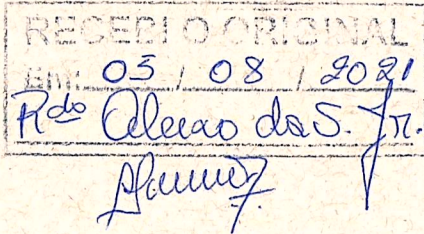 RECEBI O ORIGINAL
EM: 05 / 08 / 2021
Rdo da S. Jr.